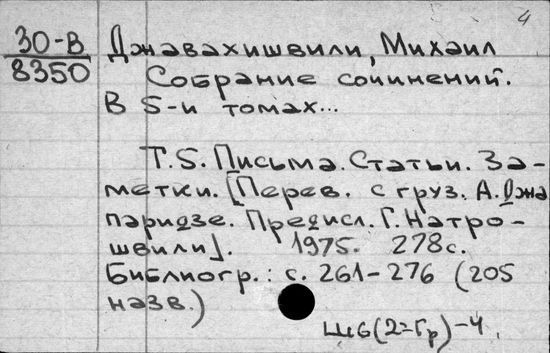 4
30-В
8350
Джавахишвили, Михаил
Собрание сочинений.
В 5-и томах...
Т.5. Письма. Статьи. За-
метки. [Перев. с груз. А. Джа
паридзе. Предисл. Г. Натро-
швили]. 1975. 278с.
Библиогр.: с. 261-276 (205
назв.)
Ш6(2=Гр)-4.